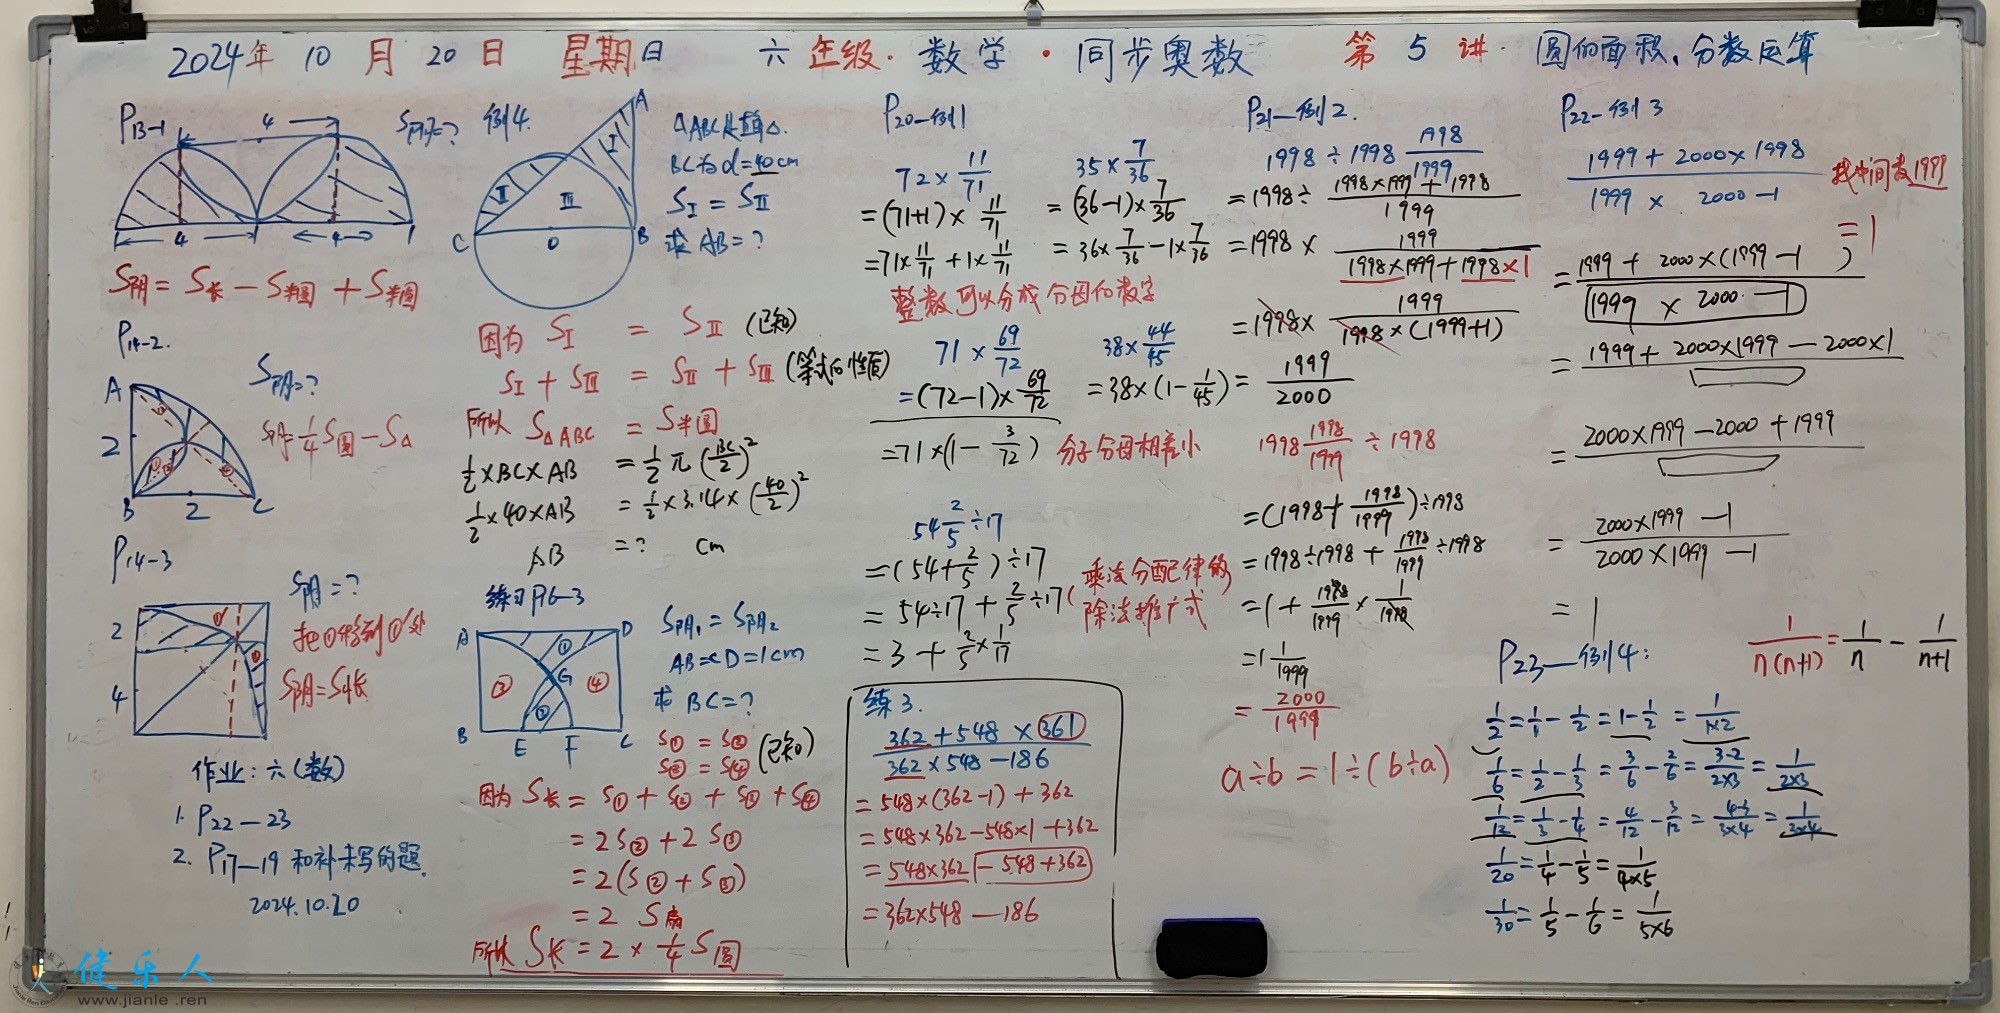 2024年 10月 20日 星期日 六年级·数学·同步奥数 第5讲·圆的面积、分数运算
P13-1
4
S阴=?
4 4
S阴 = S长 - S半圆 + S半圆
P14-2.
S阴=?
A
2
B 2 C
S阴=1/4 S圆 - S△
P14-3
2
4
S阴=?
把①移到①'处
S阴=S小长
作业:六(数)
1. P22—23
2. P17—19 和补未写的题.
2024.10.20
例4.
A
I
II III
C O B
△ABC是直角△.
BC为d=40cm
SI = SII
求 AB=?
因为 SI = SII (已知)
SI + SIII = SII + SIII (等式的性质)
所以 S△ABC = S半圆
1/2×BC×AB = 1/2 π (BC/2)²
1/2×40×AB = 1/2×3.14×(40/2)²
AB =? cm
练习P16-3
A D
① G
③ ② ④
B E F C
S阴1 = S阴2
AB=CD=1cm
求 BC=?
S①=S②
S③=S④ (已知)
因为 S长 = S① + S② + S③ + S④
= 2S② + 2S③
= 2(S② + S③)
= 2 S扇
所以 S长 = 2 × 1/4 S圆
P20—例1
72 × 11/71
=(71+1) × 11/71
=71×11/71 + 1×11/71
35 × 7/36
= (36-1)×7/36
= 36×7/36 - 1×7/36
整数可以分成分母的数字
71 × 69/72
=(72-1)×69/72
=71×(1- 3/72)
38×44/45
=38×(1-1/45)
分子分母相差小
54 2/5 ÷17
=(54+2/5)÷17
= 54÷17 + 2/5÷17
= 3 + 2/5×1/17
(乘法分配律的
除法推广式)
练3.
362+548×361 / 362×548-186
= 548×(362-1) + 362
= 548×362-548×1+362
= 548×362 -548+362
= 362×548 — 186
P21—例2.
1998 ÷ 1998 1998/1999
=1998÷ (1998×1999+1998)/1999
=1998 × 1999/(1998×1999+1998×1)
=1998× 1999/(1998×(1999+1))
= 1999/2000
1998 1998/1999 ÷ 1998
=(1998+1998/1999)÷1998
=1998÷1998 + 1998/1999÷1998
=1+ 1998/1999 × 1/1998
=1 1/1999
= 2000/1999
a÷b = 1÷(b÷a)
P22—例3
1999+2000×1998 / 1999 × 2000-1
找中间数1999
=1
= 1999 + 2000×(1999-1) / 1999 × 2000-1
= 1999+2000×1999-2000×1
= 2000×1999-2000+1999
= 2000×1999-1 / 2000×1999-1
= 1
P23—例4:
1/n(n+1) = 1/n - 1/n+1
1/2=1/1-1/2=1-1/2=1/1×2
1/6=1/2-1/3=3/6-2/6=3-2/2×3=1/2×3
1/12=1/3-1/4=4/12-3/12=4-3/3×4=1/3×4
1/20=1/4-1/5=1/4×5
1/30=1/5-1/6=1/5×6
健乐人
www.jianle.ren